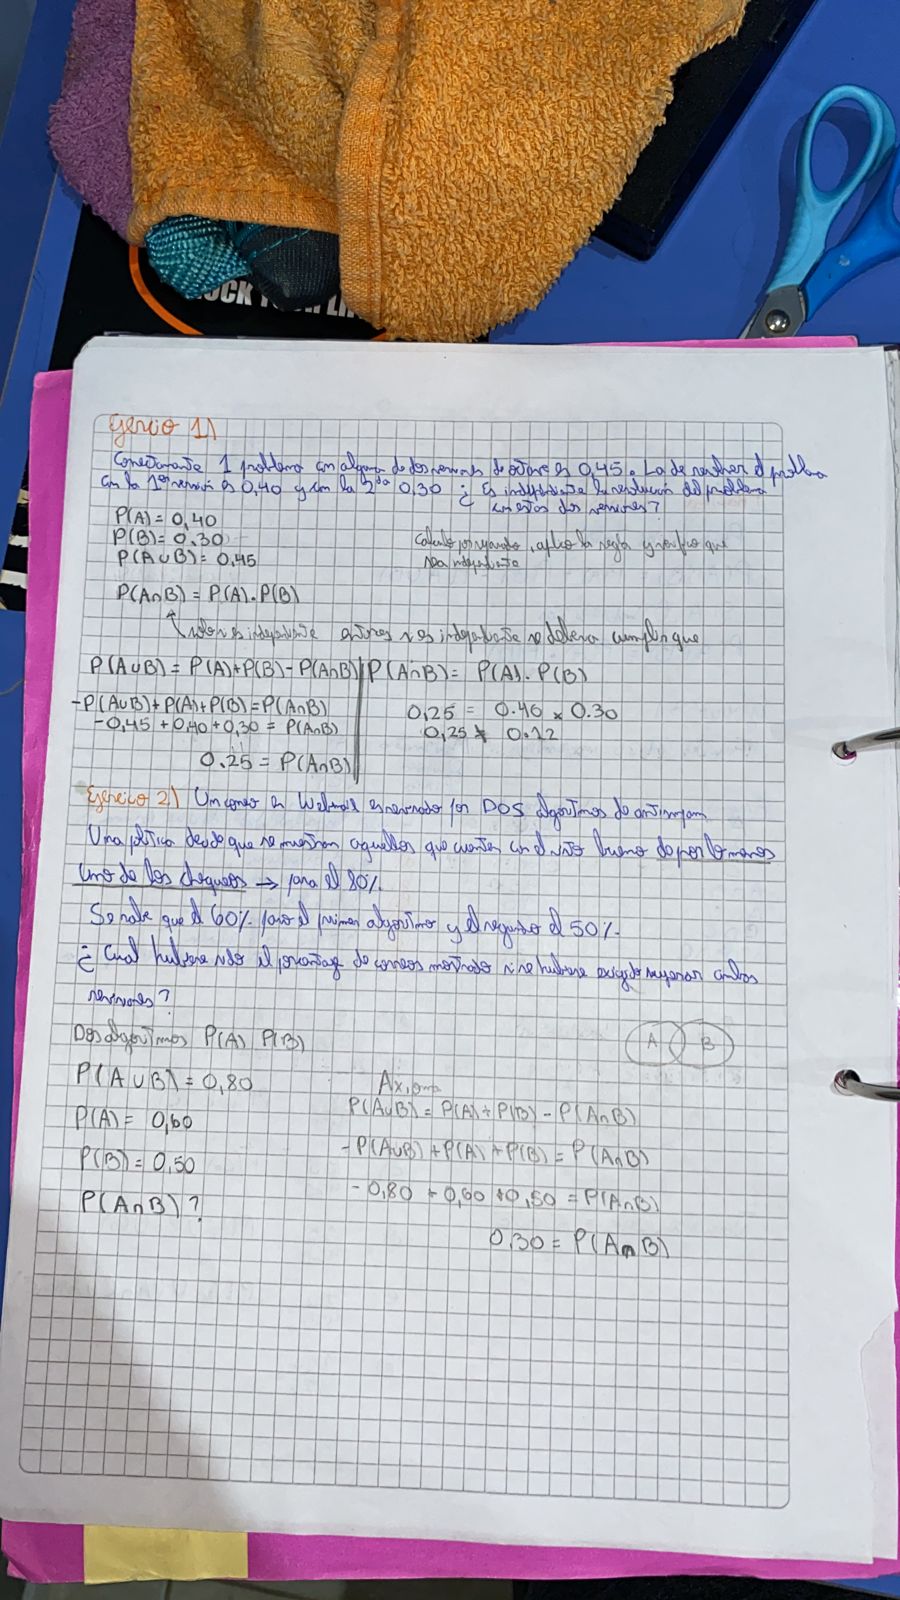 Ejercicio 1)
1 problema con alguna de dos versiones de es 0,45. La de resolver el problema
con la 1era versión es 0,40 y con la 2da 0,30 ¿ Es independiente la resolución del problema
con estas dos versiones?
P(A) = 0,40
P(B) = 0.30
P(A∪B) = 0,45
Calculo , aplico la regla y verifico que
sea independiente
P(A∩B) = P(A).P(B)
independiente entonces si es independiente se debera cumplir que
P(A∪B) = P(A)+P(B) - P(A∩B)
-P(A∪B)+P(A)+P(B) = P(A∩B)
-0,45 +0,40 +0,30 = P(A∩B)
0.25 = P(A∩B)
P(A∩B) = P(A). P(B)
0,25 = 0.40 x 0.30
0,25 ≠ 0.12
Ejercicio 2) Un correo es Webmail es por DOS algoritmos de antispam
Una política decide que se muestran aquellos que cuentan con el visto bueno de por lo menos
uno de los chequeos → para el 80%
Se sabe que el 60% pasó el primer algoritmo y el segundo el 50%.
¿ Cual hubiese sido el porcentaje de correos mostrado si se hubiese exigido superar ambos
revisiones?
Dos algoritmos P(A) P(B)
A B
P(A∪B) = 0,80
P(A) = 0,60
P(B) = 0,50
P(A∩B) ?
Axioma
P(A∪B) = P(A) + P(B) - P(A∩B)
-P(A∪B) + P(A) + P(B) = P(A∩B)
- 0,80 + 0,60 + 0,50 = P(A∩B)
0,30 = P(A∩B)